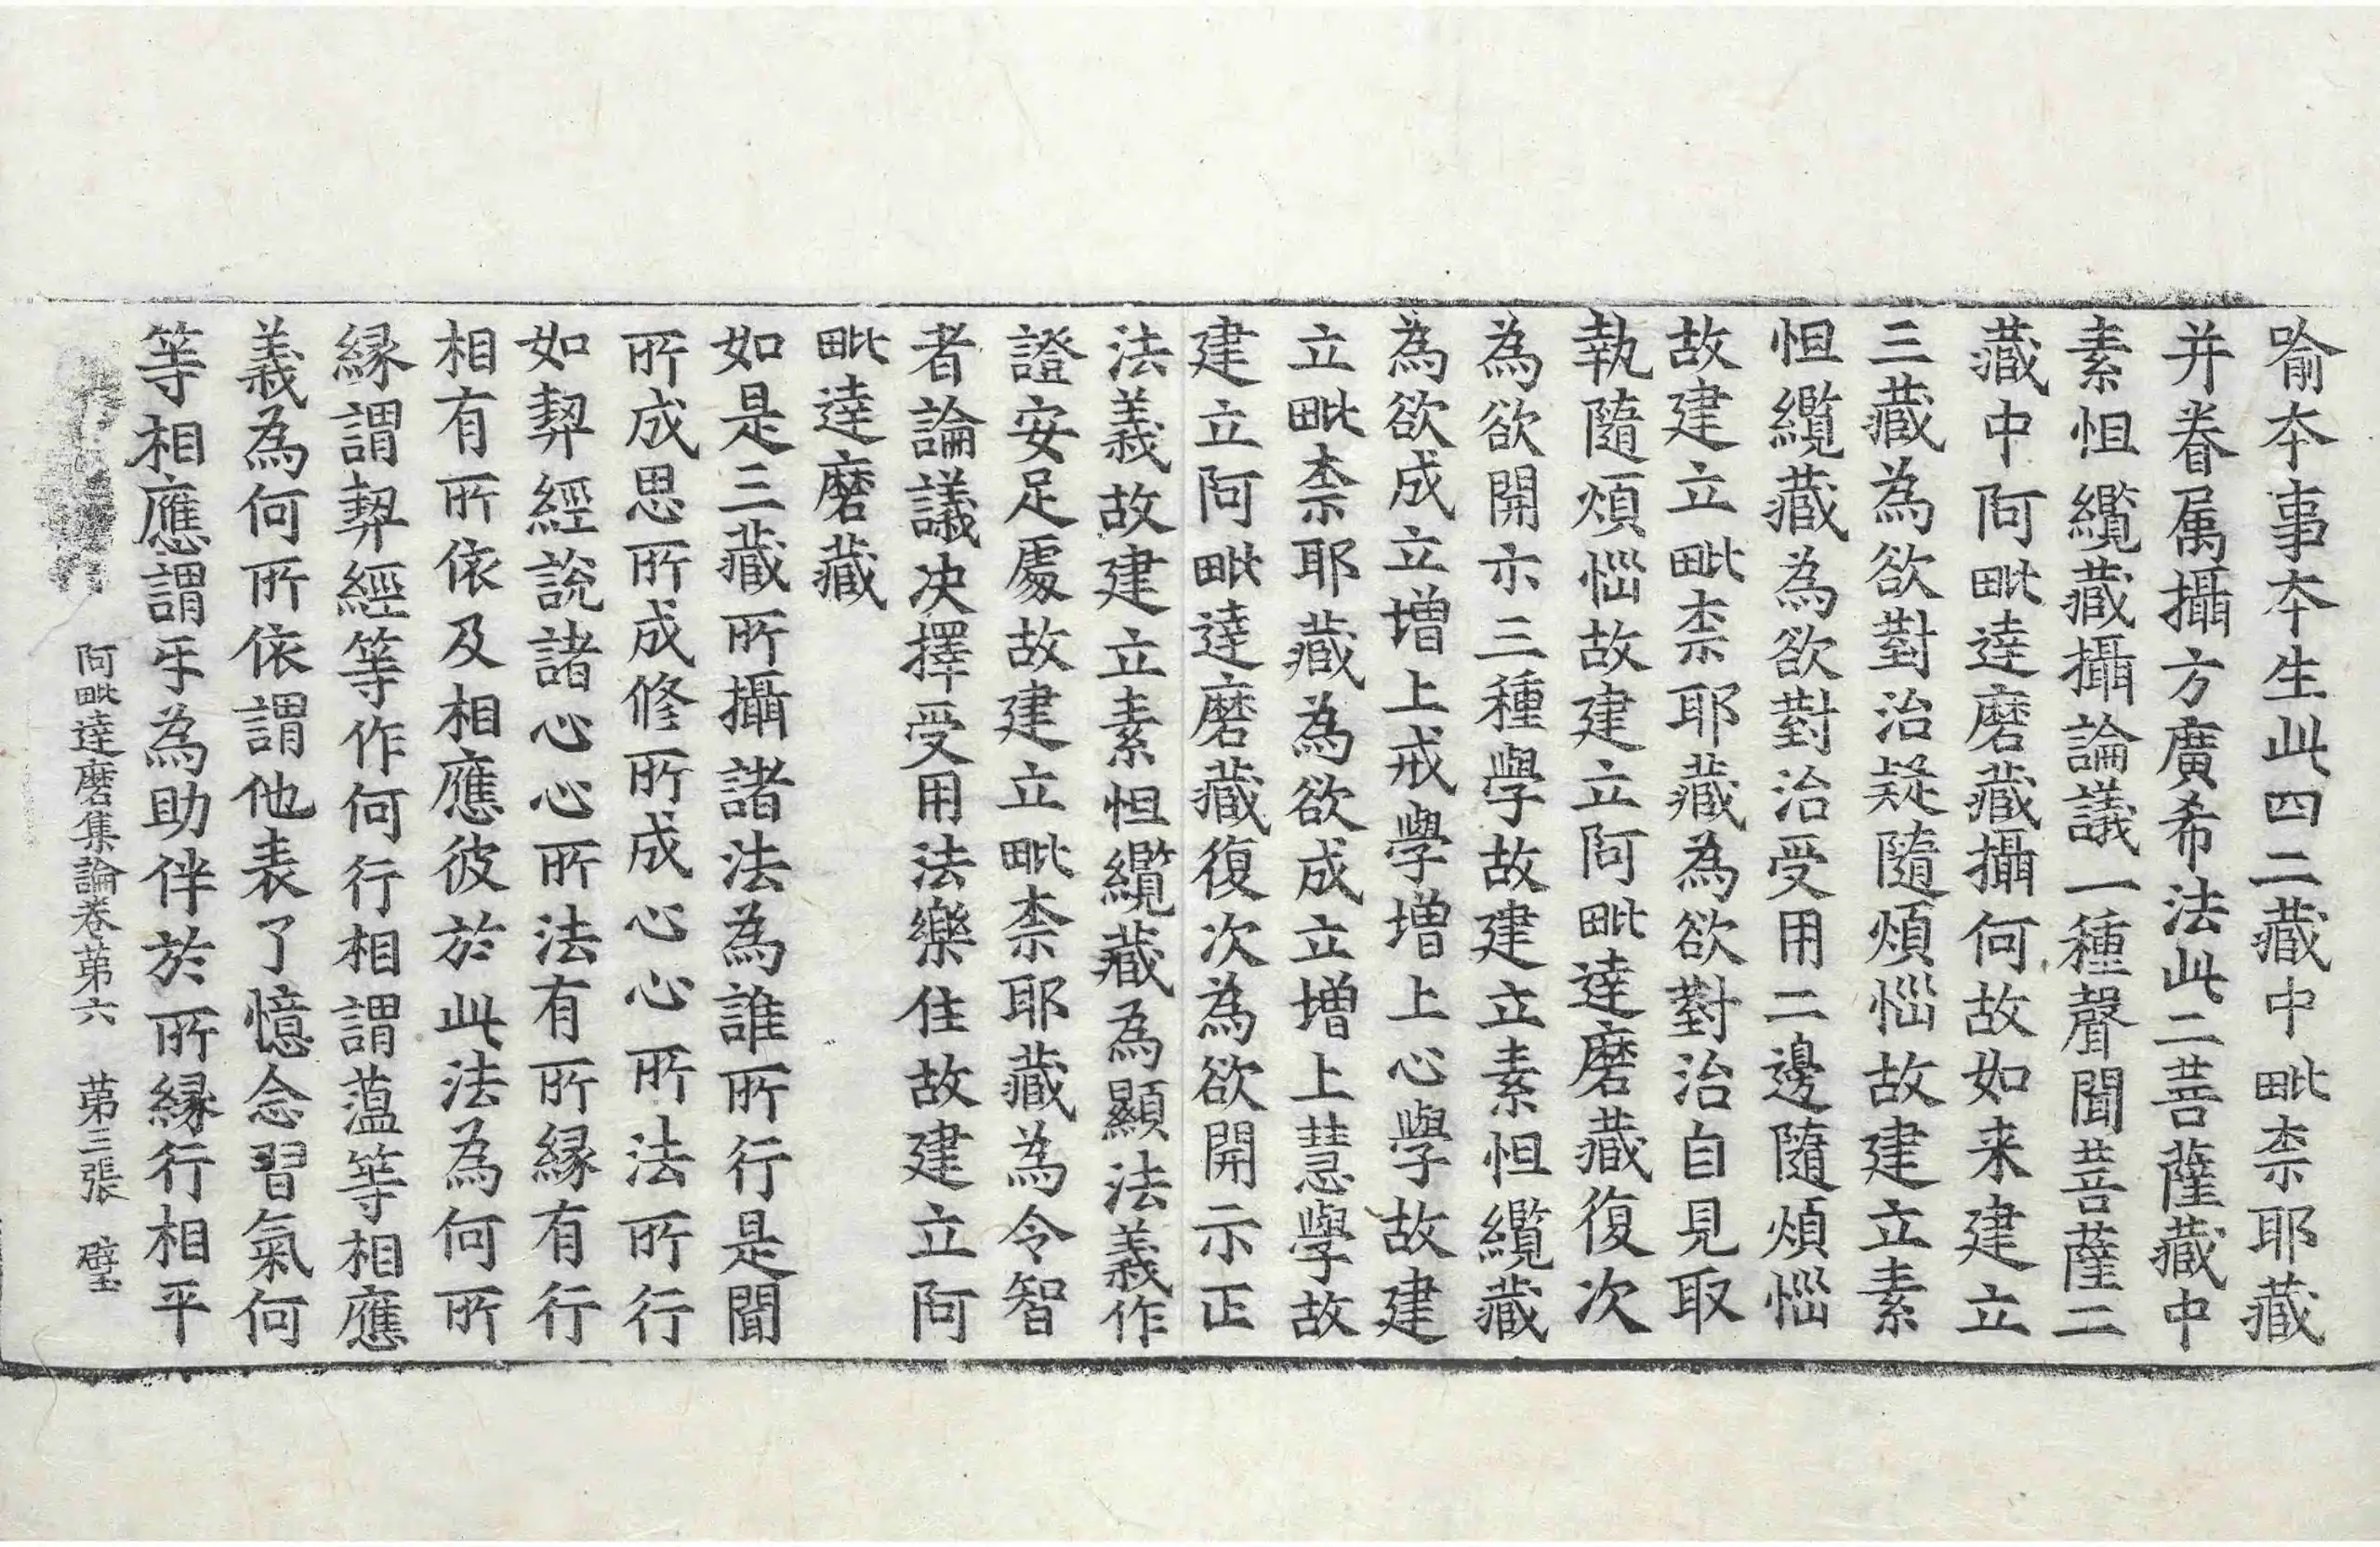 喻夲事夲生此四二藏中毗柰耶藏
并眷属攝方廣希法此二菩薩藏中
素怛纜藏攝論議一種聲聞菩薩二
藏中阿毗達磨藏攝何故如来建立
三藏為欲對治疑隨煩惱故建立素
怛纜藏為欲對治受用二邊隨煩惱
故建立毗柰耶藏為欲對治自見取
執隨煩惱故建立阿毗達磨藏復次
為欲開示三種學故建立素怛纜藏
為欲成立增上戒學增上心學故建
立毗柰耶藏為欲成立增上慧學故
建立阿毗達磨藏復次為欲開示正
法義故建立素怛纜藏為顯法義作
證安足處故建立毗柰耶藏為令智
者論議决擇受用法樂住故建立阿
毗達磨藏
如是三藏所攝諸法為誰所行是聞
所成思所成修所成心心所法所行
如契經說諸心心所法有所緣有行
相有所依及相應彼於此法為何所
緣謂契經等作何行相謂蕰等相應
義為何所依謂他表了憶念習氣何
等相應謂㸦為助伴於所緣行相平
阿毗達磨集論卷苐六　苐三張　璧